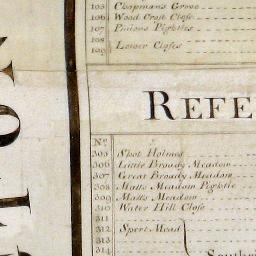 105 Chapman's Grove
106 Wood Croft Close
107 Pinions Pightles
108
109 Lower Closes
REFE
No.
305 Shot Holmes
306 Little Broady Meadow
307 Great Broady Meadow
308 Malts Meadow Pightle
309 Malts Meadow
310 Water Hill Close
311
312 Spert Mead
313
314